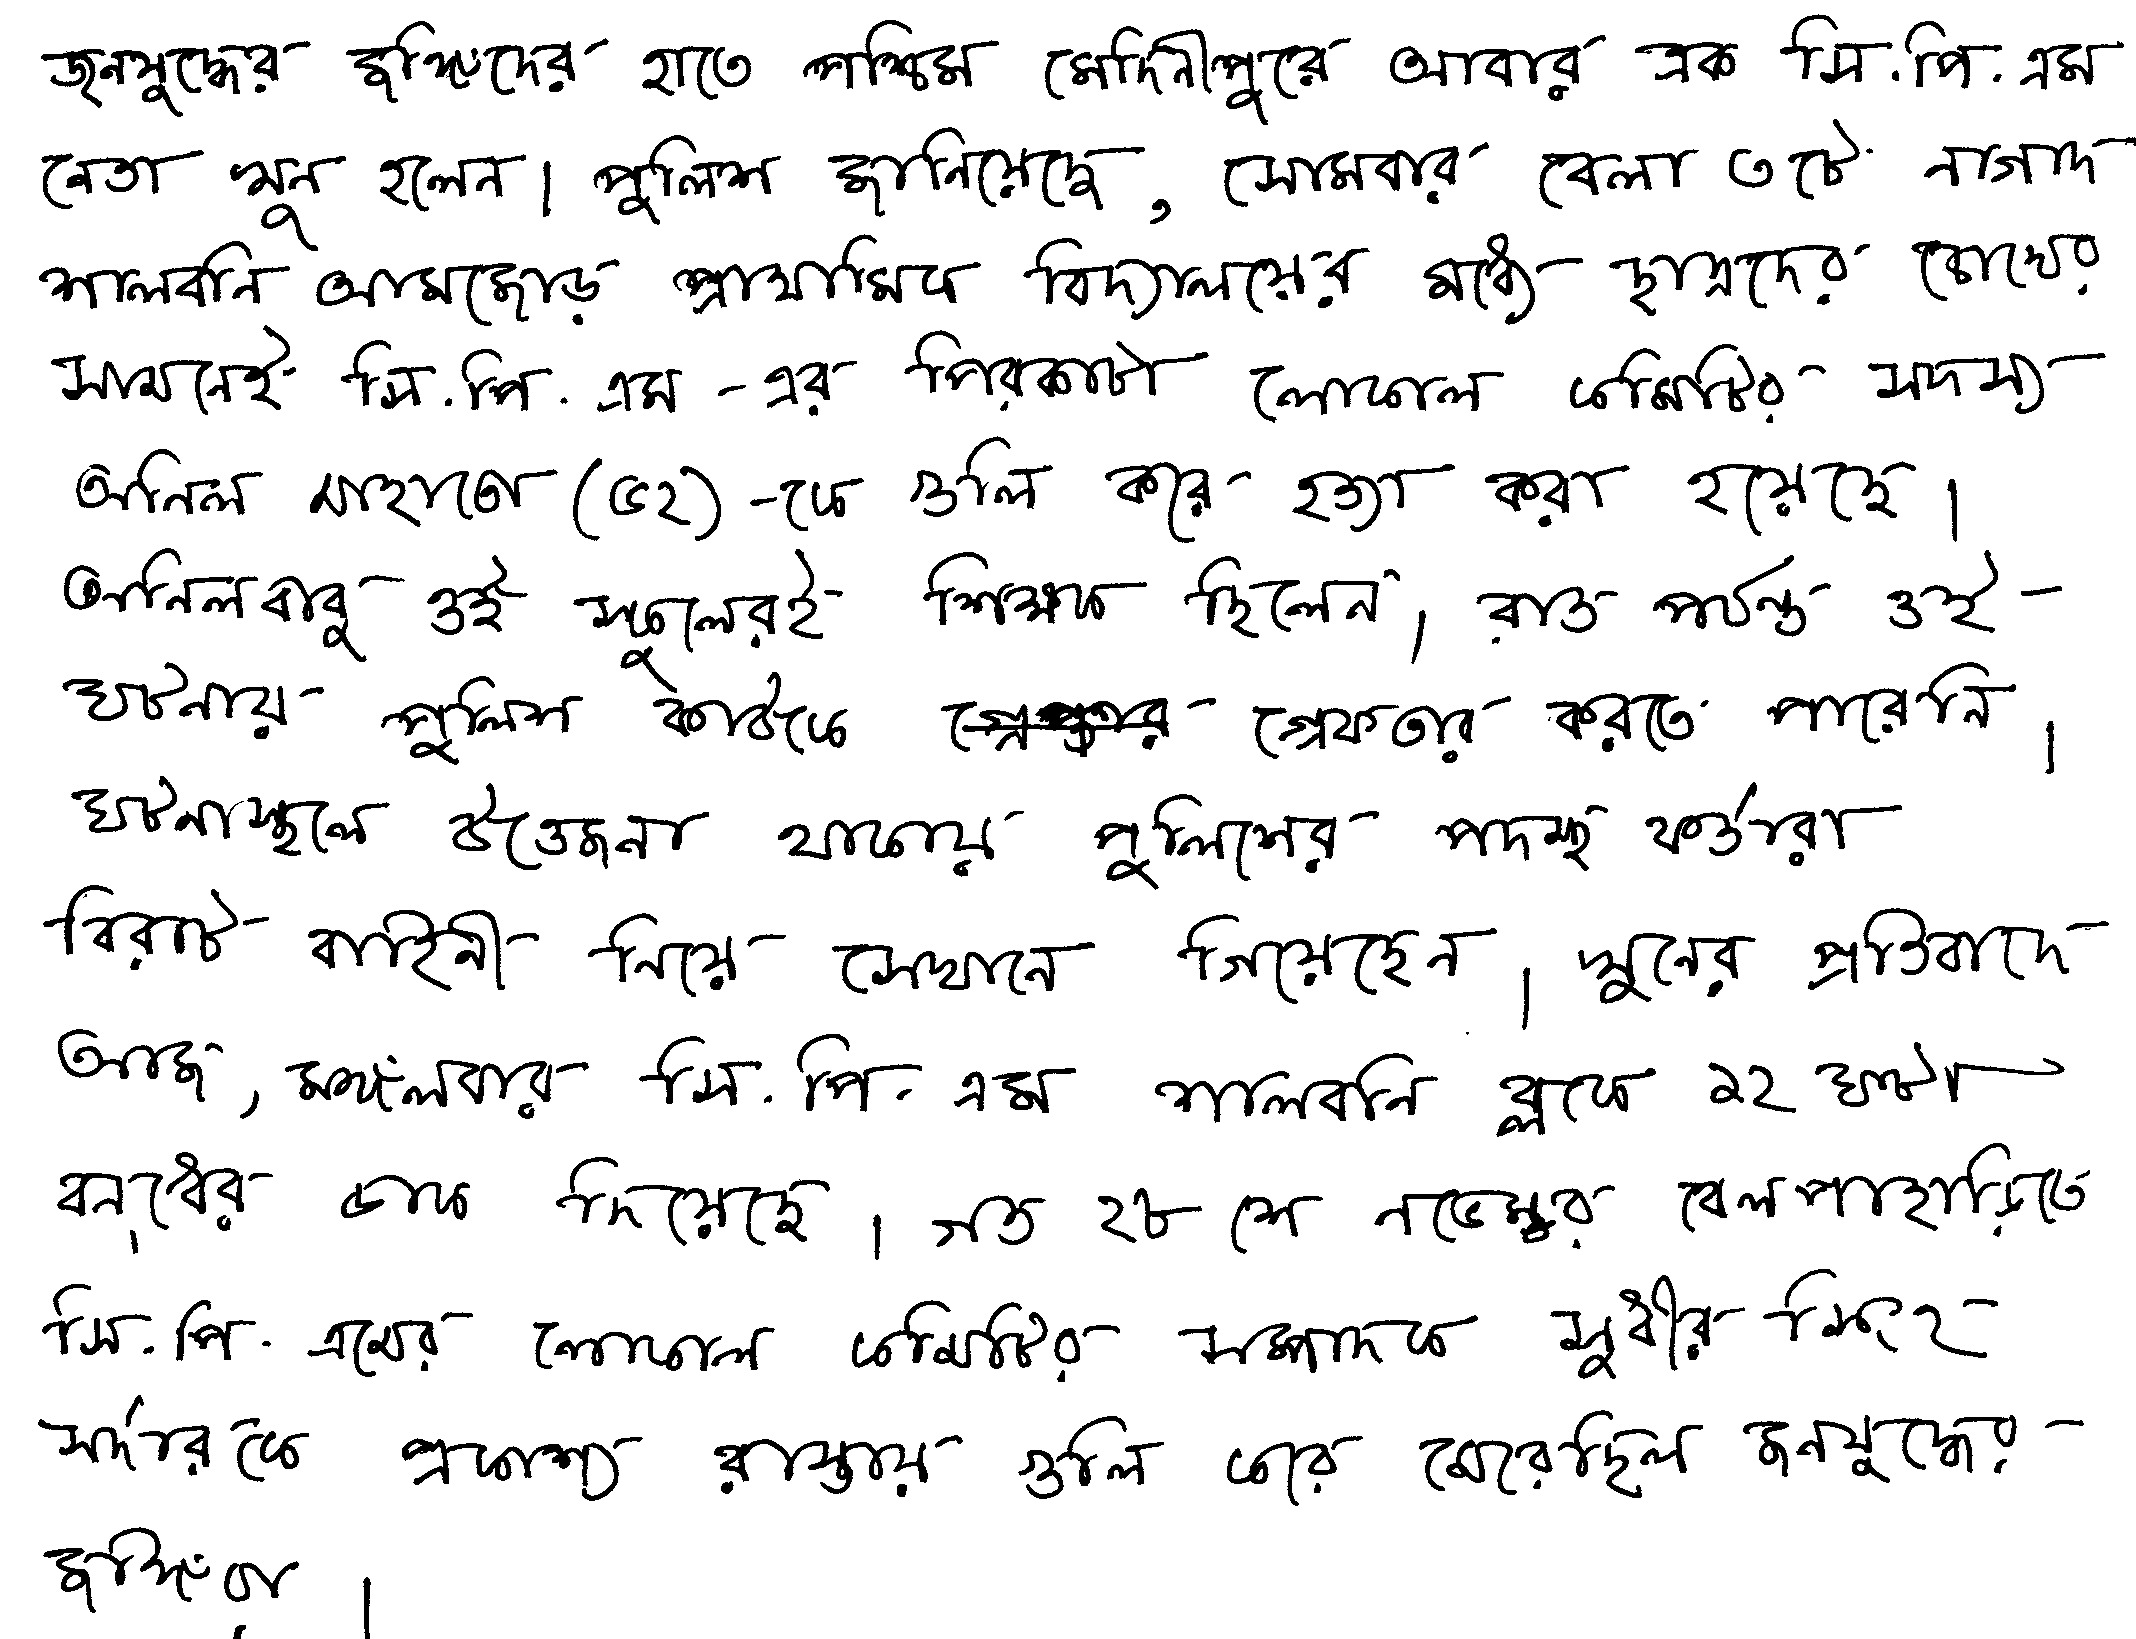 জনযুদ্ধের জঙ্গিদের হাতে পশ্চিম মেদিনীপুরে আবার এক সি.পি.এম
নেতা খুন হলেন। পুলিশ জানিয়েছে, সোমবার বেলা ৩টে নাগাদ
শালবনি আমজোড় প্রাথমিক বিদ্যালয়ের মধ্যে ছাত্রদের চোখের
সামনেই সি.পি.এম-এর পিরকাটা লোকাল কমিটির সদস্য
অনিল মাহাতো (৫২)-কে গুলি করে হত্যা করা হয়েছে।
অনিলবাবু ওই স্কুলেরই শিক্ষক ছিলেন। রাত পর্যন্ত ওই
ঘটনায় পুলিশ কাউকে গ্রেফতার করতে পারেনি।
ঘটনাস্থলে উত্তেজনা থাকায় পুলিশের পদস্থ কর্তারা
বিরাট বাহিনী নিয়ে সেখানে গিয়েছেন। খুনের প্রতিবাদে
আজ, মঙ্গলবার সি.পি.এম শালবনি ব্লকে ১২ ঘন্টা
বন্‌ধের ডাক দিয়েছে। গত ২৮ শে নভেম্বর বেলপাহাড়িতে
সি.পি.এমের লোকাল কমিটির সম্পাদক সুধীর সিংহ
সর্দারকে প্রকাশ্য রাস্তায় গুলি করে মেরেছিল জনযুদ্ধের
জঙ্গিরা।